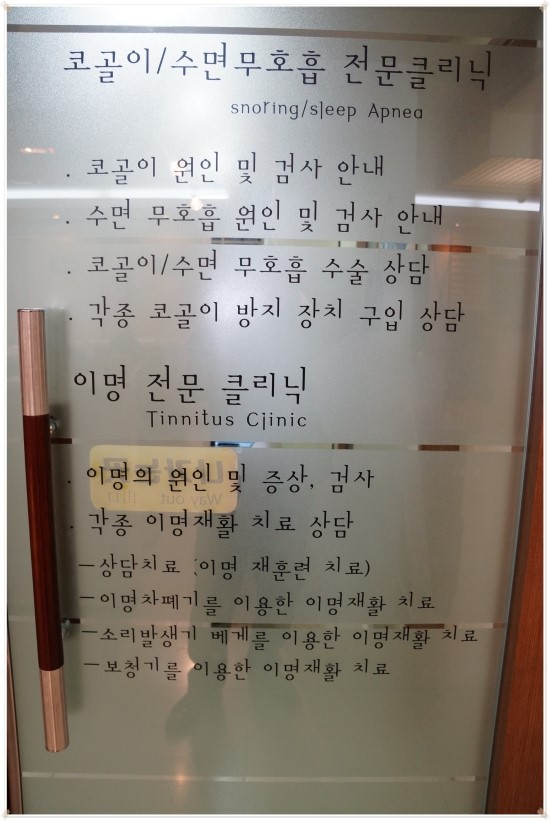 코골이/수면무호흡 전문클리닉
snoring/sleep Apnea
. 코골이 원인 및 검사 안내
. 수면 무호흡 원인 및 검사 안내
. 코골이/수면 무호흡 수술 상담
. 각종 코골이 방지 장치 구입 상담
이명 전문 클리닉
Tinnitus Clinic
. 이명의 원인 및 증상, 검사
. 각종 이명재활 치료 상담
-상담치료 (이명 재훈련 치료)
-이명차폐기를 이용한 이명재활 치료
-소리발생기 베게를 이용한 이명재활 치료
-보청기를 이용한 이명재활 치료
나가는곳
Way out